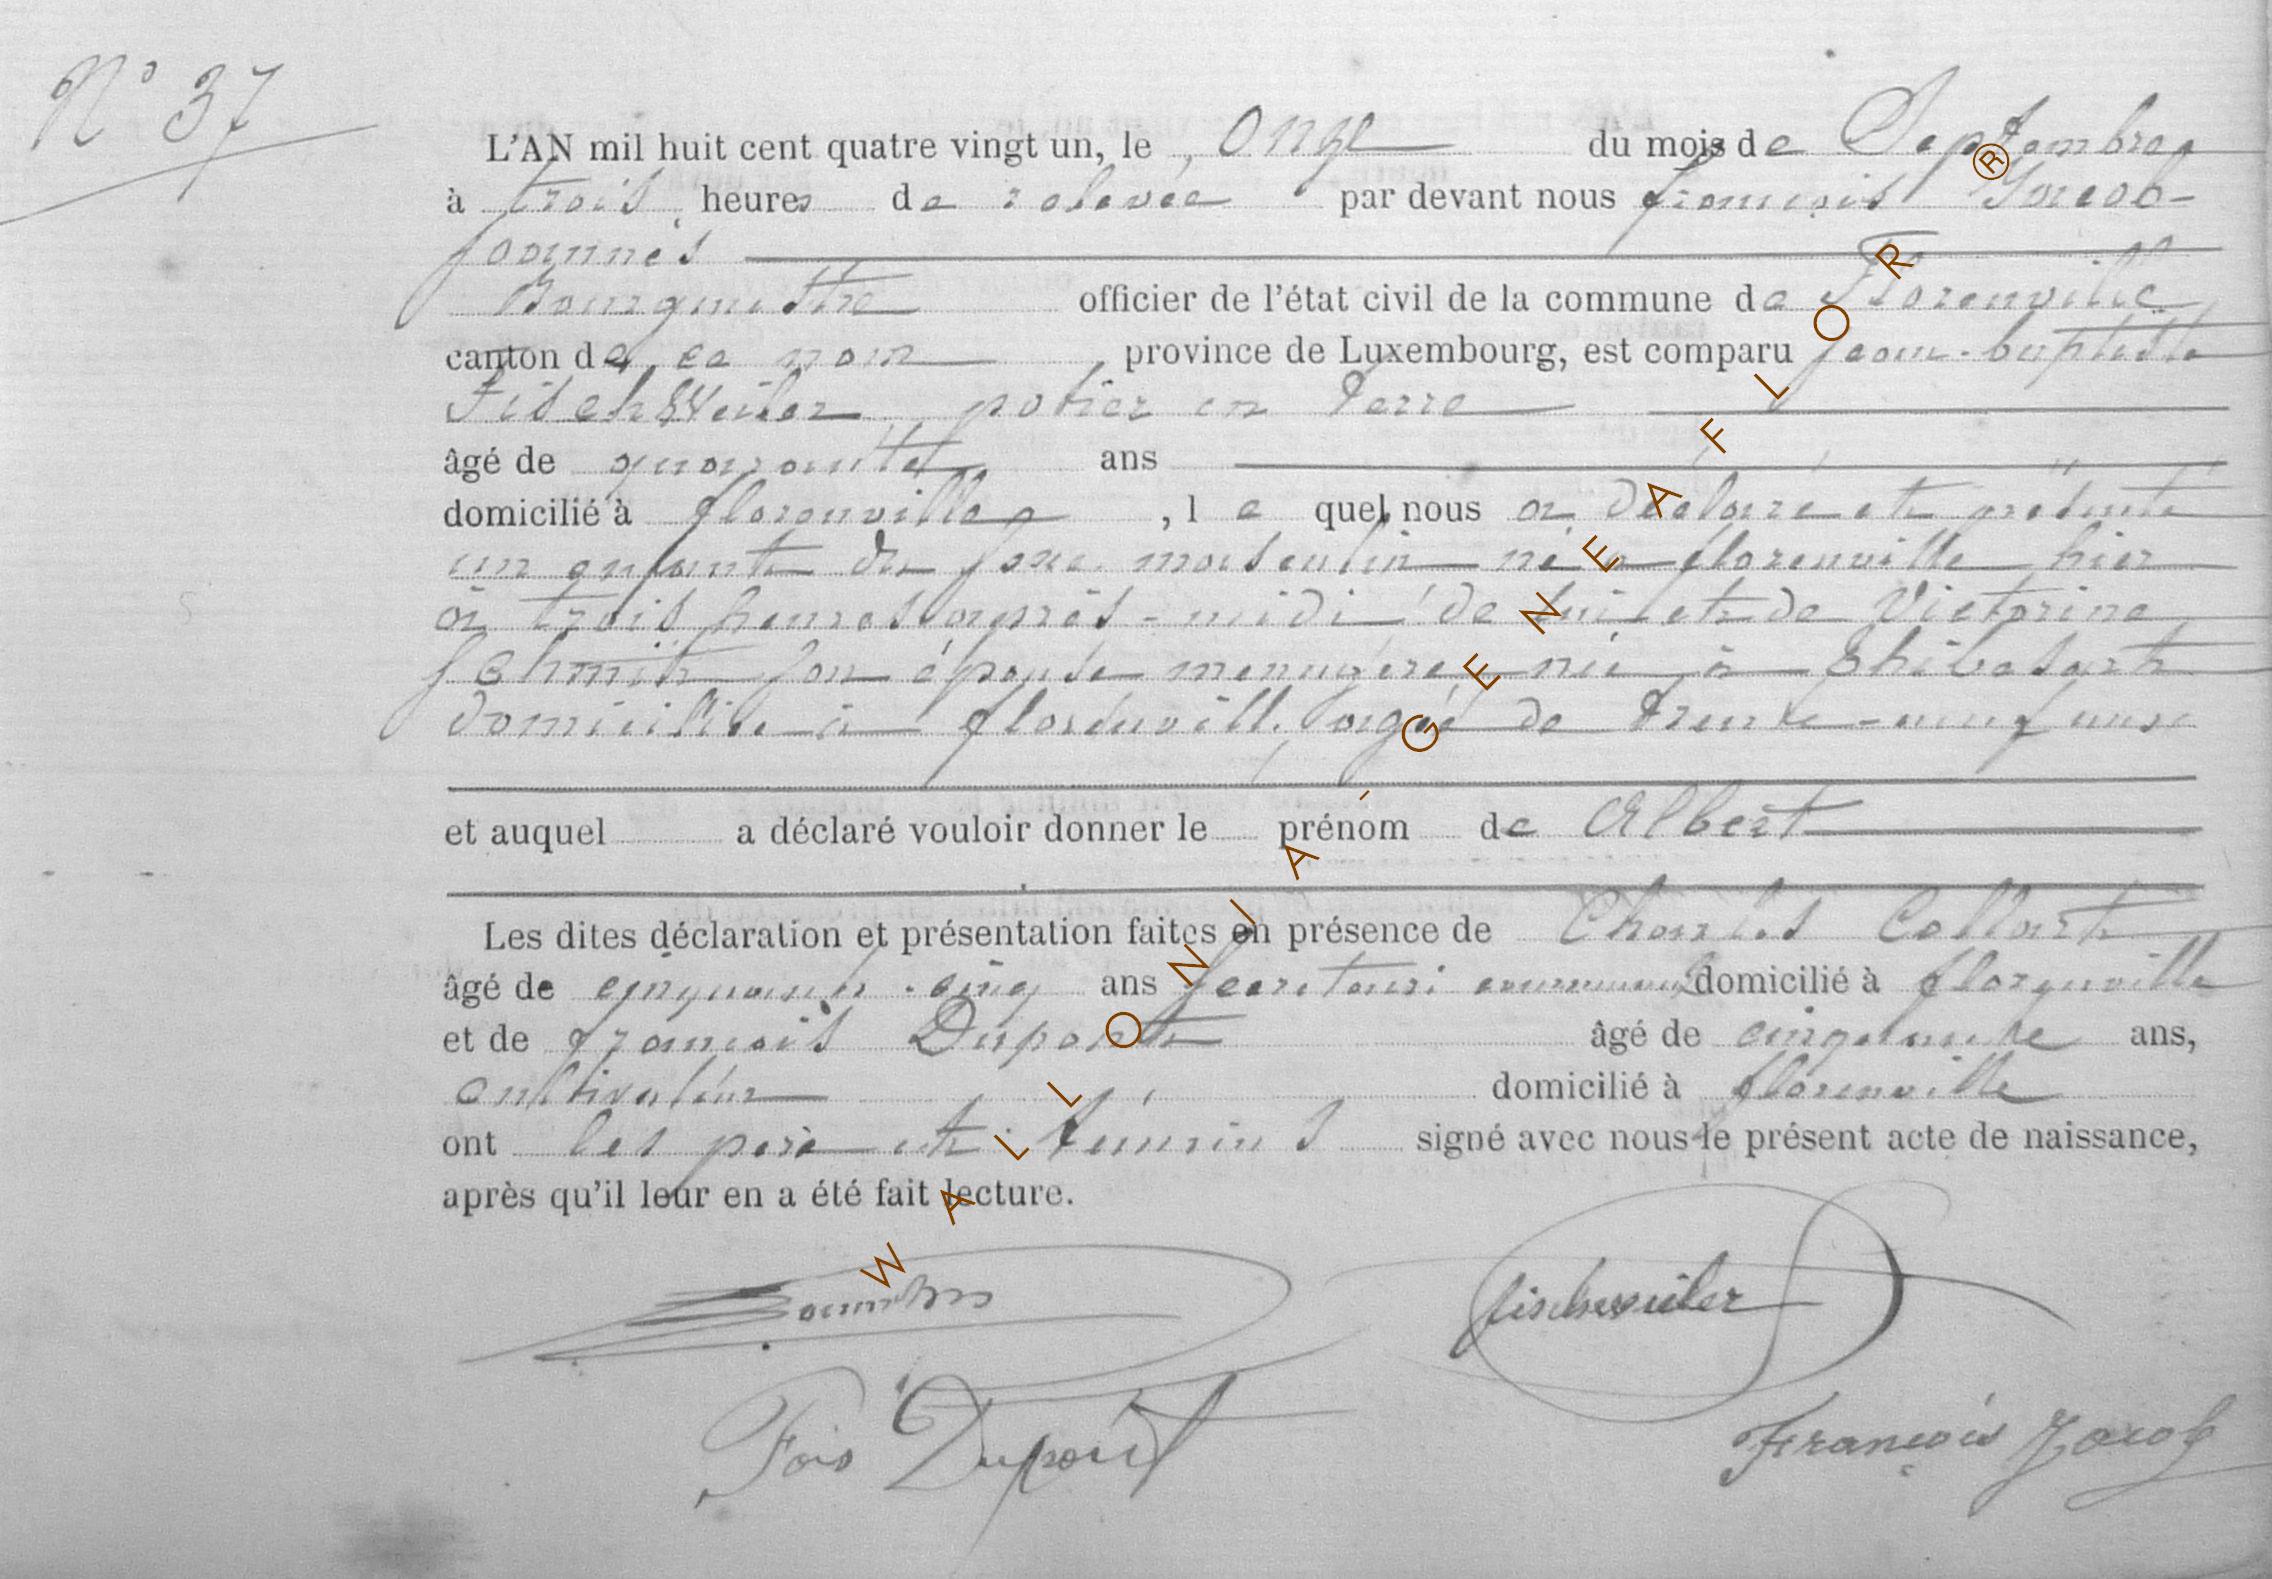 N° 37
L'AN mil huit cent quatre vingt un, le onze du mois de Septembre
à trois heures de relevée par devant nous françois Jacob-
joannès
Bourgmestre officier de l'état civil de la commune de Florenville
canton de ce nom province de Luxembourg, est comparu jean-baptiste
Fischweiler potier en terre
âgé de quarante ans
domicilié à florenville, le quel nous a déclaré et présenté
un enfant du sexe masculin né à florenville hier
à trois heures après-midi de lui et de Victorine
Schmit son épouse menagère née à
domicilié à florenville, agée de trente-neuf ans
et auquel a déclaré vouloir donner le prénom de Albert
Les dites déclaration et présentation faites en présence de Charles Collart
âgé de cinquante-cinq ans secretaire communal domicilié à florenville
et de françois Dupont âgé de cinquante ans,
cultivateur domicilié à florenville
ont les père et témoins signé avec nous le présent acte de naissance,
après qu'il leur en a été fait lecture.
fischweiler
Fois Dupont François Jacob
WALLONIA'GENEAFLOR®